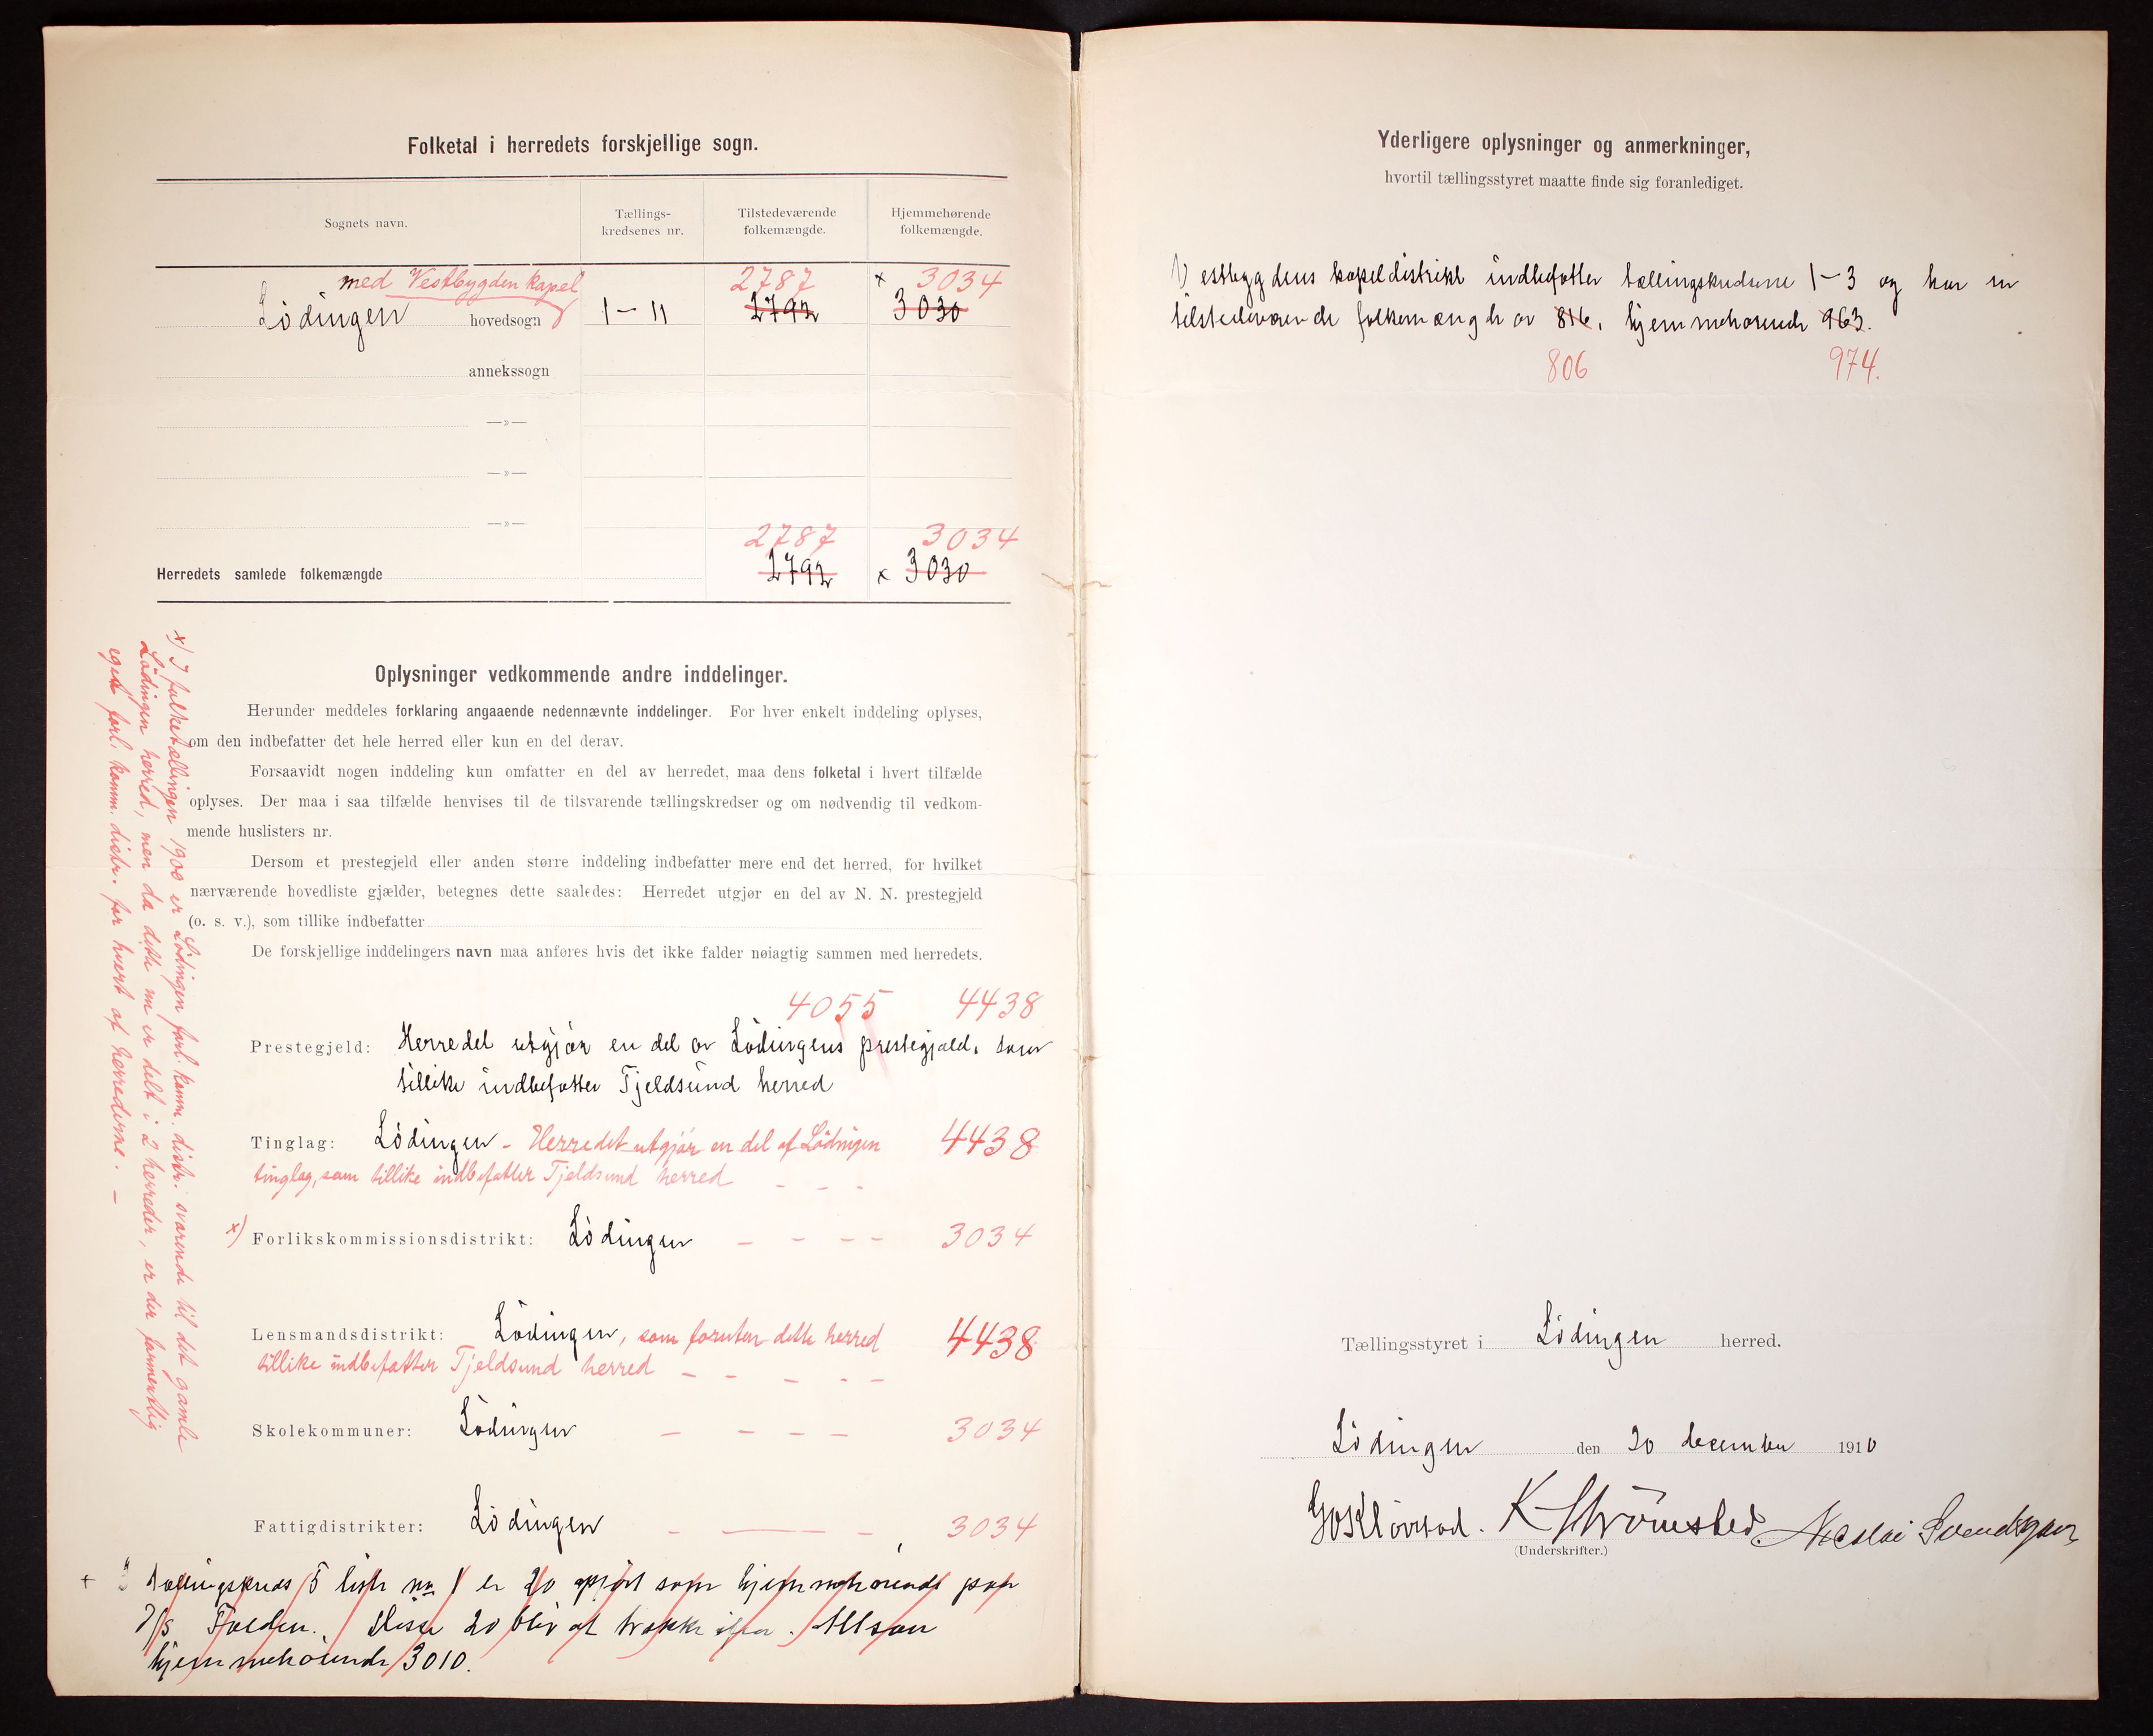 Folketal i herredets forskjellige sogn.
Sognets navn.
Tællings-
kredsenes nr.
Tilstedeværende
folkemængde.
Hjemmehørende
folkemængde.
med Vestbygden Kapel 2787 × 3034
Lödingen hovedsogn 1 – 11 2792 3030
annekssogn
—»—
—»—
—»—
2787 3034
Herredets samlede folkemængde 2792 × 3030
Oplysninger vedkommende andre inddelinger.
Herunder meddeles forklaring angaaende nedennævnte inddelinger. For hver enkelt inddeling oplyses,
om den indbefatter det hele herred eller kun en del derav.
Forsaavidt nogen inddeling kun omfatter en del av herredet, maa dens folketal i hvert tilfælde
oplyses. Der maa i saa tilfælde henvises til de tilsvarende tællingskredser og om nødvendig til vedkom-
mende huslisters nr.
Dersom et prestegjeld eller anden større inddeling indbefatter mere end det herred, for hvilket
nærværende hovedliste gjælder, betegnes dette saaledes: Herredet utgjør en del av N. N. prestegjeld
(o. s. v.), som tillike indbefatter
De forskjellige inddelingers navn maa anføres hvis det ikke falder nøiagtig sammen med herredets.
4055 4438
Prestegjeld: Herredet utgjör en del av Lödingens prestegjæld, som
tillike indbefatter Tjeldsund herred
Tinglag: Lödingen - Herredet utgjör en del af Lödingen 4438
tinglag, som tillike indbefatter Tjeldsund herred – – –
×) Forlikskommissionsdistrikt: Lödingen – – – – 3034
Lensmandsdistrikt: Lödingen, som foruten dette herred 4438
tillike indbefatter Tjeldsund herred – – – – –
Skolekommuner: Lödingen – – – – 3034
Fattigdistrikter: Lödingen – — – 3034
+ I tællingskreds 5 liste no 1 er 20 opfört som hjemmehörende paa
D/S Folden. Disse 20 blir at trække ifra. Altsaa
hjemmehörende 3010.
×) I folketællingen 1900 er Lödingen forl. komm. distr. svarende til det gamle
Lödingen herred, men da dette nu er delt i 2 herreder, er der formentlig
eget forl. komm. distr. for hvert af herrederne. –
Yderligere oplysninger og anmerkninger,
hvortil tællingsstyret maatte finde sig foranlediget.
Vestbygdens kapeldistrikt indbefatter tællingskredsene 1 – 3 og har en
tilstedeværende folkemængde av 816, hjemmehörende 963.
806 974.
Tællingsstyret i Lödingen herred.
Lödingen den 20 december 1910
K Strömsted Nicolai Svendsgaar
(Underskrifter.)